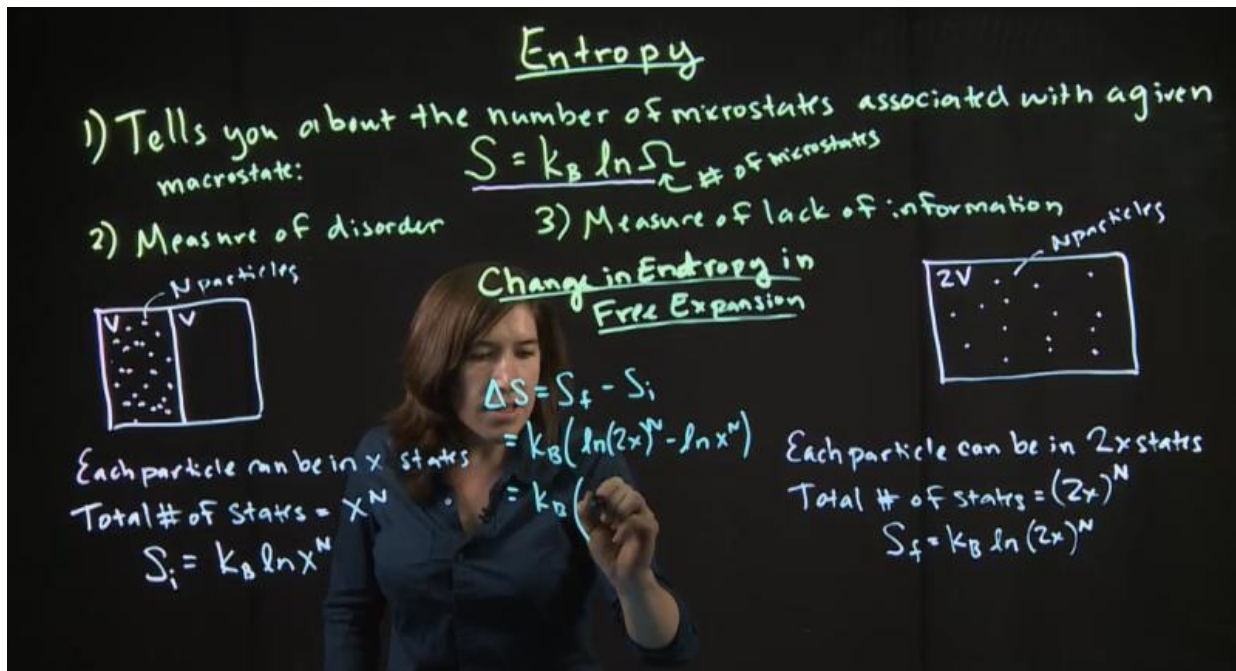 Entropy
1) Tells you about the number of microstates associated with a given
macrostate:
S = k_B ln Ω
# of microstates
2) Measure of disorder
3) Measure of lack of information
N particles
V
V
Change in Entropy in
Free Expansion
N particles
2V
Each particle can be in x states
Total # of states = x^N
S_i = k_B ln x^N
ΔS = S_f - S_i
= k_B (ln(2x)^N - ln x^N)
= k_B (
Each particle can be in 2x states
Total # of states = (2x)^N
S_f = k_B ln (2x)^N